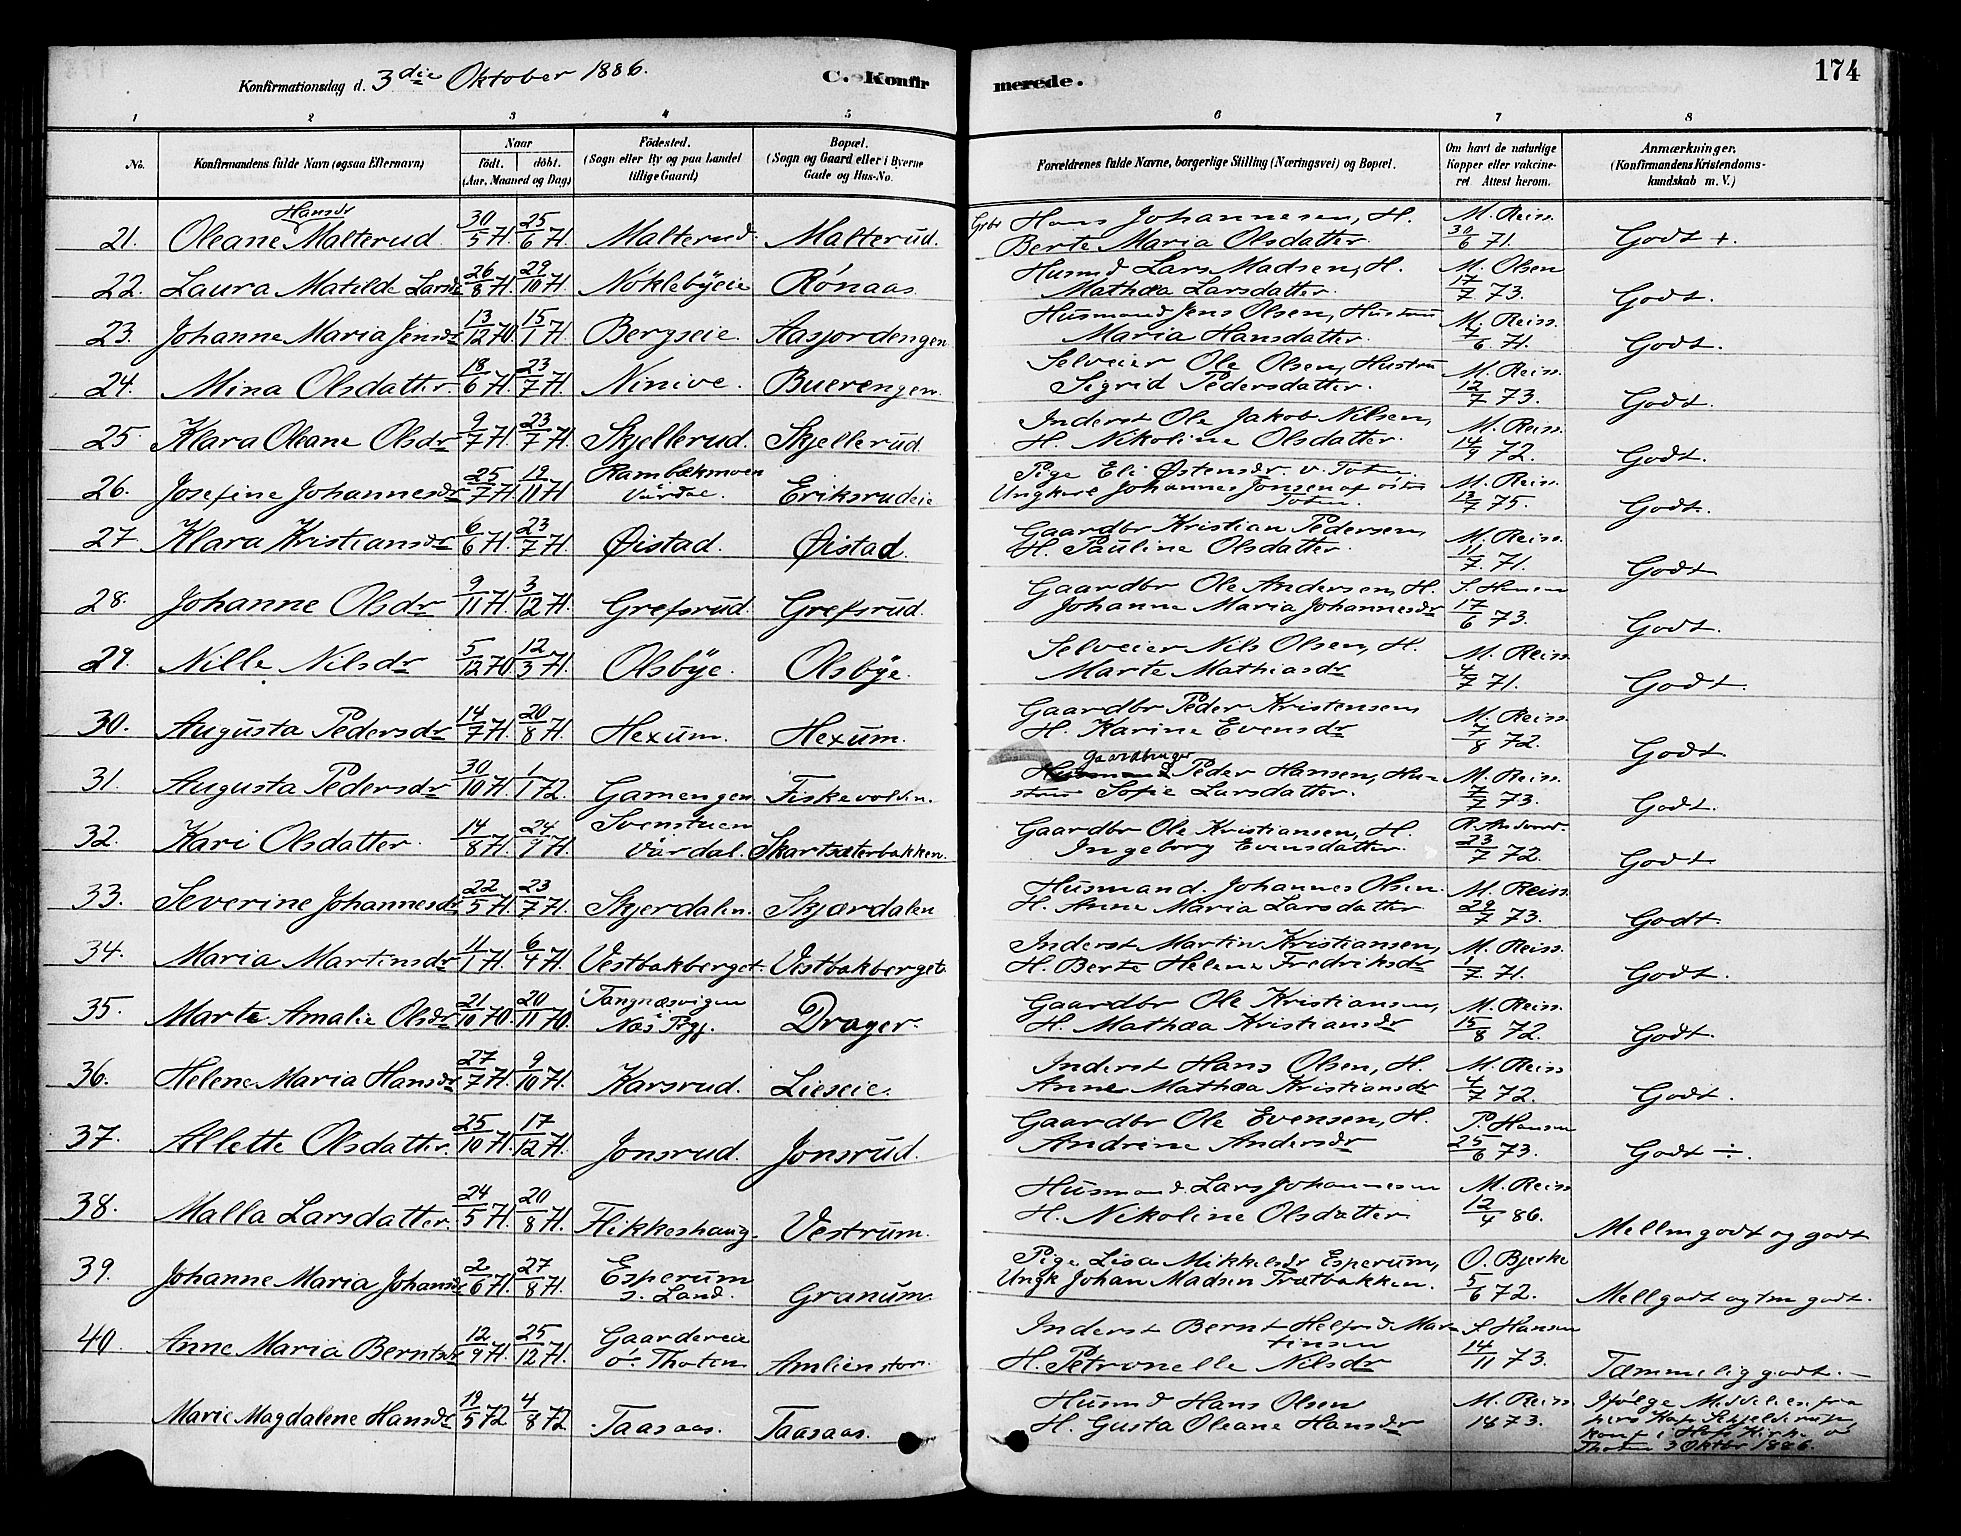 Konfirmationsdag d. 3die Oktober 1886.
C. Konfir
merede.
174
1 2 3 4 5 6 7 8
No.
Konfirmandens fulde Navn (ogsaa Efternavn)
Naar
født. døbt.
(Aar, Maaned og Dag)
Födested.
(Sogn eller By og paa Landet
tillige Gaard)
Bopæl.
(Sogn og Gaard eller i Byerne
Gade og Hus-No.
Forældrenes fulde Navne, borgerlige Stilling (Næringsvei) og Bopæl.
Om havt de naturlige
Kopper eller vakcine-
ret. Attest herom.
Anmærkninger,
(Konfirmandens Kristendoms-
kundskab m. V.)
21. Oleane Hansdr Malterud 30/5 71. 25/6 71. Malterud. Malterud. Grbr Hans Johannesen, H.
Berte Maria Olsdatter. M. Reiss. 30/6 71. Godt +.
22. Laura Matilde Larsdr 26/8 71. 29/10 71. Nöklebÿeie Rónaas. Husmd Lars Madsen, H.
Mathæa Larsdatter. M. Olsen 17/7 73. Godt.
23. Johanne Maria Jensdr 13/12 70 15/1 71. Bergseie. Aasjordengen. Husmand Jens Olsen, Hustru
Maria Hansdatter. M. Reiss. 7/6 71. Godt.
24. Mina Olsdatter. 18/6 71. 23/7 71. Ninive. Buerengen. Selveier Ole Olsen, Hustru
Sigrid Pedersdatter. M. Reiss. 12/7 73. Godt.
25. Klara Oleane Olsdr 9/7 71. 23/7 71. Skjellerud. Skjellerud. Inderst Ole Jakob Nilsen,
H. Nikoline Olsdatter. M. Reiss. 14/9 72. Godt.
26. Josefine Johannesdr 25/7 71. 12/11 71 Rambækmoen
Vardal. Eriksrudeie Pige Eli Østensdr. v. Toten.
Ungkarl Johannes Jonsen af östre
Toten. M. Reiss. 13/7 75. Godt.
27. Klara Kristiansdr 6/6 71. 23/7 71. Øistad. Øistad. Gaardbr Kristian Pedersen,
H. Pauline Olsdatter. M. Reiss. 11/7. 71. Godt
28. Johanne Olsdr 9/11 71. 3/12 71. Grefsrud. Grefsrud. Gaardbr Ole Andersen, H.
Johanne Maria Johannesdr S. Hansen 17/6 73. Godt.
29. Nille Nilsdr 5/12 70 12/3 71. Olsbÿe. Olsbÿe. Selveier Nils Olsen, H.
Marte Mathiasdr M. Reiss. 4/7 71. Godt.
30. Augusta Pedersdr 14/7 71. 20/8 71. Hexum. Hexum. Gaardbr Peder Kristensen,
H. Karine Evensdr M. Reiss. 7/8 72. Godt
31. Augusta Pedersdr 30/10 71. 1/1 72. Gamengen Fiskevolden. Husmand Gaardbruger Peder Hansen, Hu-
stru Sofie Larsdatter. M. Reiss. 7/7 73. Godt.
32. Kari Olsdatter. 14/8 71. 24/9 71. Svenstuen
Vardal. Skartsæterbakken. Gaardbr Ole Kristiansen, H.
Ingeborg Evensdatter. 23/7 72. Godt
33. Severine Johannesdr 22/5 71. 23/7 71. Skjerdalen. Skjærdalen Husmand. Johannes Olsen.
H. Anne Maria Larsdatter M. Reiss. 29/7 73. Godt.
34. Maria Martinsdr 11/1 71. 6/4 71. Vestbakberget. Vestbakberget. Inderst Martin Kristiansen,
H. Berte Helene Fredriksdr M. Reiss. 1/7. 71. Godt.
35. Marte Amalie Olsdr 21/10 70. 20/11 70. Tangnæsvigen
Næs Prgj. Drager. Gaardbr Ole Kristiansen,
H. Mathæa Kristiansdr M. Reiss. 15/8 72. Godt.
36. Helene Maria Hansdr 27/7 71. 9/10 71. Karsrud. Lieseie. Inderst Hans Olsen, H.
Anne Mathæa Kristiansdr M. Reiss 4/7 72. Godt.
37. Allette Olsdatter. 25/10 71. 17/12 71. Jonsrud. Jonsrud. Gaardbr Ole Evensen, H.
Andrine Andersdr P. Hansen 25/6 73. Godt ÷.
38. Malla Larsdatter. 24/5 71. 20/8 71. Flikkeshaug. Vestrum. Husmand. Lars Johannesen
H. Nikoline Olsdatter. M. Reiss 12/4 86. Mellmgodt og godt
39. Johanne Maria Johansdr 2/6 71. 27/8 71. Esperum
s. Land. Granum. Pige Lisa Mikkelsdr Esperum,
Ungk Johan Madsen Tratbakken. O. Bjerke 5/6 72. Mellgodt og tm godt.
40. Anne Maria Berntsdr 12/9 71. 25/12 71. Gaardereie
ö. Thoten Amlienstor. Inderst Bernt Helfred Mar-
tinsen
H. Petronelle Nilsdr S. Hansen 14/11 73. Tæmmelig godt. —
Marie Magdalene Hansdr 19/5 72 4/8 72 Taasaas. Taasaas. Husmd Hans Olsen
H. Gusta Oleane Hansdr M. Reiss 1873. Ifølge Meddelelse fra
pers Kap. Skjelderup,
konf i Hofs Kirke ö
Thoten 3 Oktbr 1886.